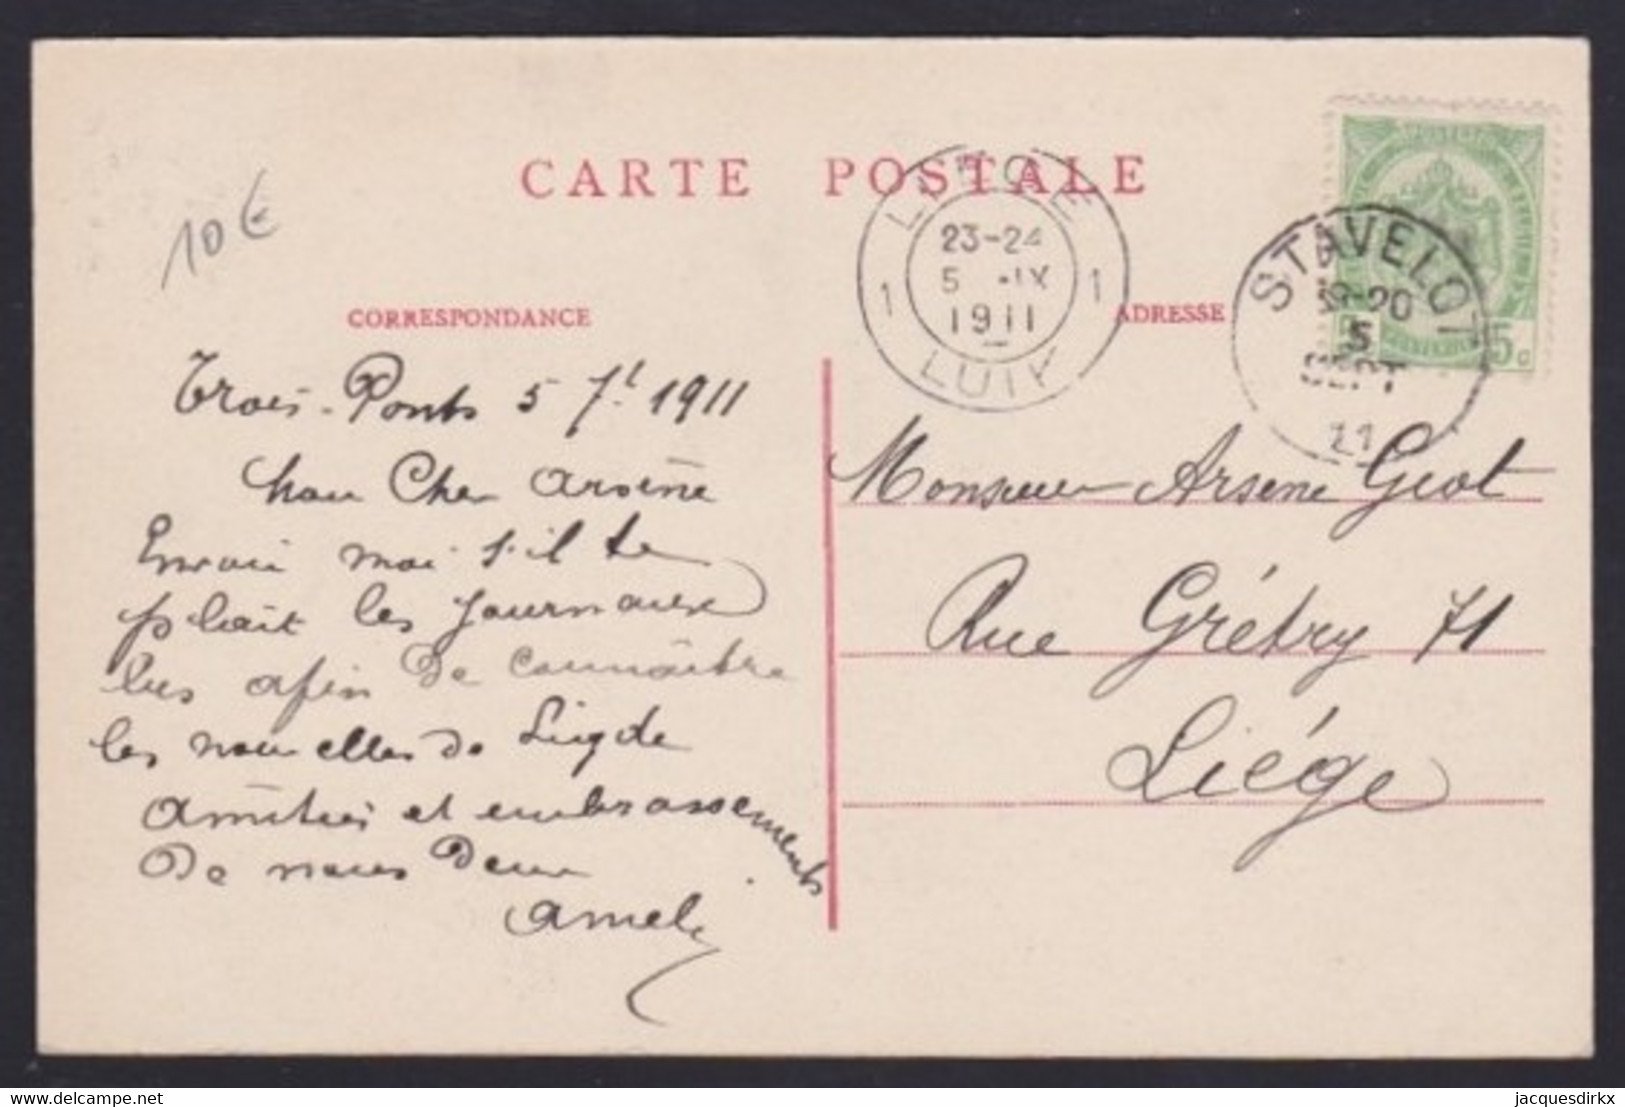 CARTE POSTALE
10€
LIEGE
1 23-24 1
5 -IX
1911
LUIK
STAVELOT
19-20
5
SEPT
11
5c
CORRESPONDANCE
ADRESSE
Trois-Ponts 5 7bre 1911
Mon Cher Arsène
Envoie moi s'il te
plait les journaux
lus afin de connaître
les nouvelles de Liège
Amitiés et embrassements
De nous Deux
Amelie
Monsieur Arsène Geot
Rue Grétry 71
Liége
delcampe.net
jacquesdirkx